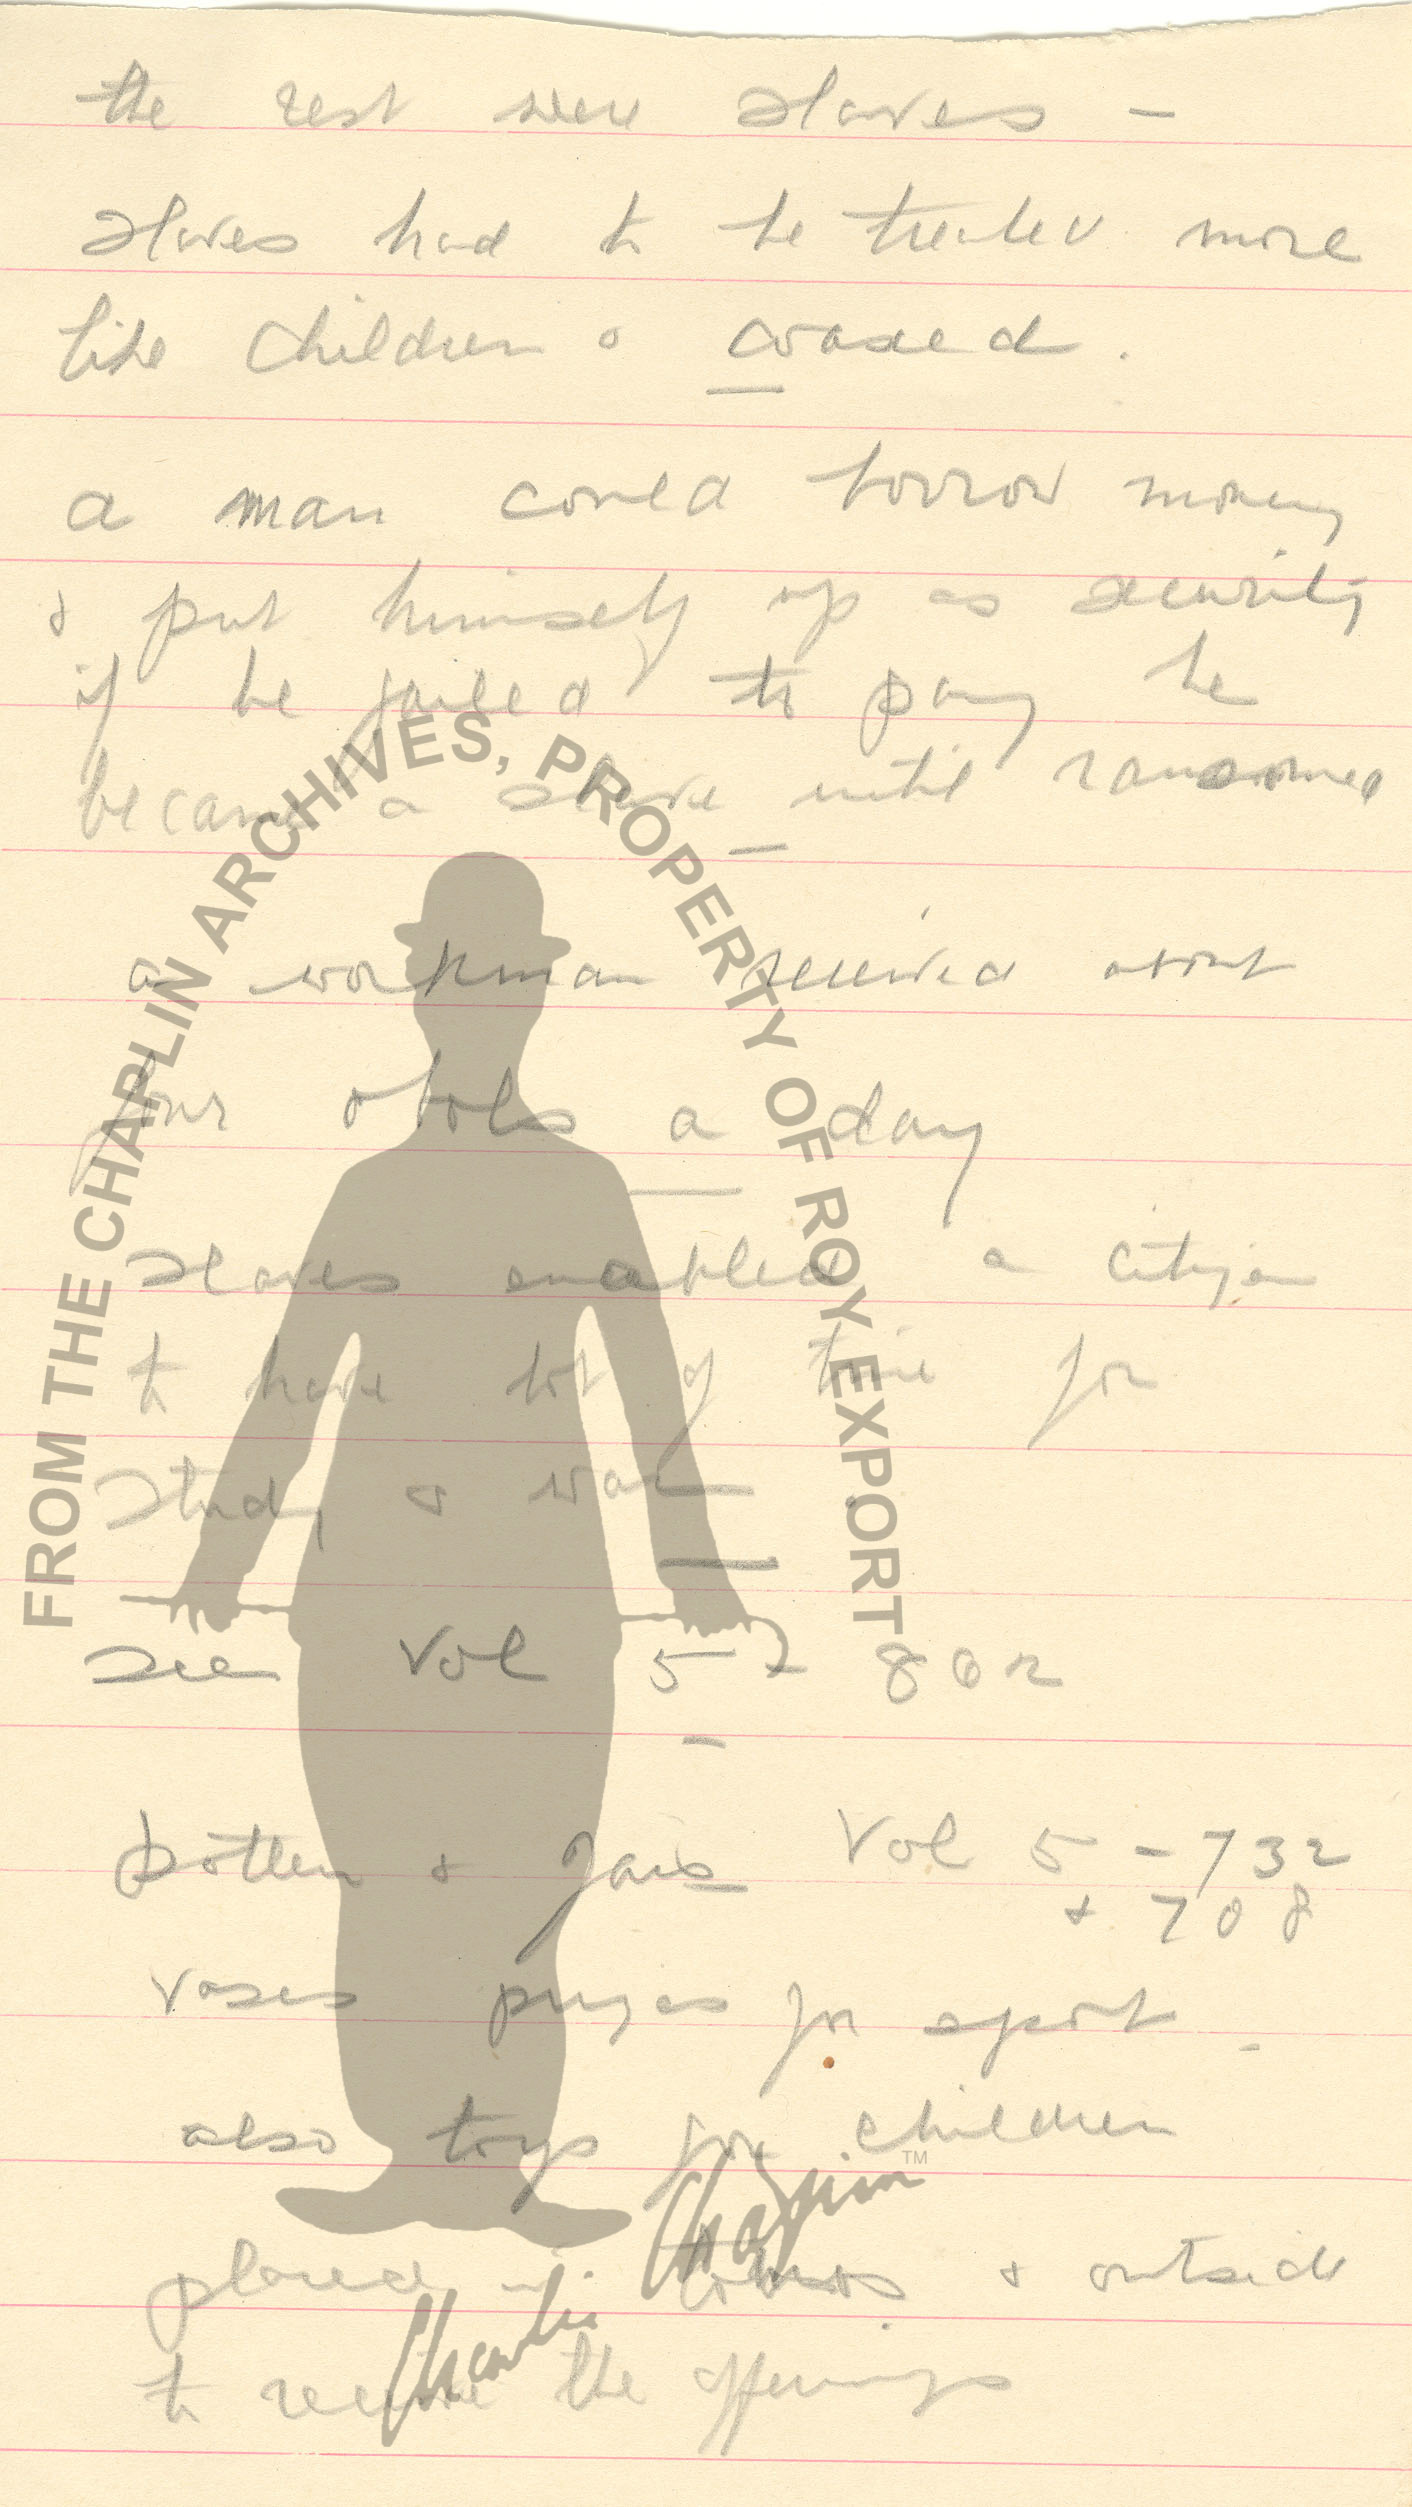 the rest were slaves –
slaves had to be treated more
like children & coaxed.
a man could borrow money
& put himself up as security
if he failed to pay he
became a slave until ransomed
a workman received about
four obols a day
slaves enabled a citizen
to have lot of time for
study & war
see Vol 5 – 802
pottery & jars Vol 5 – 732
+ 708
vases prizes for sport –
also toys for children
placed in tombs & outside
to receive the offerings
FROM THE CHAPLIN ARCHIVES, PROPERTY OF ROY EXPORT
Charlie Chaplin ™